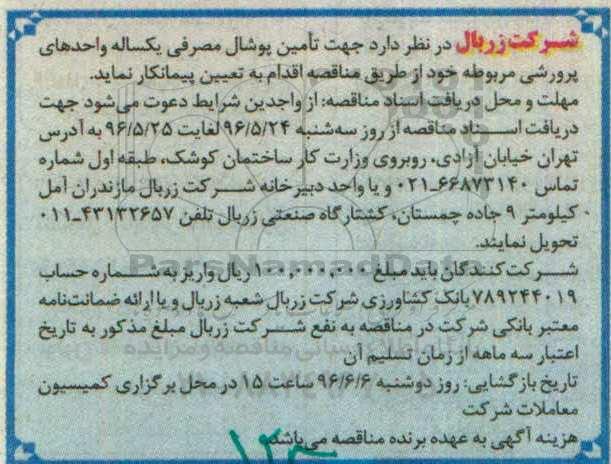 شرکت زربال در نظر دارد جهت تأمین پوشال مصرفی یکساله واحدهای
پرورشی مربوطه خود از طریق مناقصه اقدام به تعیین پیمانکار نماید.
مهلت و محل دریافت اسناد مناقصه: از واجدین شرایط دعوت می‌شود جهت
دریافت اسناد مناقصه از روز سه‌شنبه ۹۶/۵/۲۴ لغایت ۹۶/۵/۲۵ به آدرس
تهران خیابان آزادی، روبروی وزارت کار ساختمان کوشک، طبقه اول شماره
تماس ۶۶۸۷۳۱۴۰-۰۲۱ و یا واحد دبیرخانه شرکت زربال مازندران آمل
کیلومتر ۹ جاده چمستان، کشتارگاه صنعتی زربال تلفن ۴۳۱۳۲۶۵۷-۰۱۱
تحویل نمایند.
ParsNamadData
شرکت‌کنندگان باید مبلغ ۱۰۰,۰۰۰,۰۰۰ ریال واریز به شماره حساب
۷۸۹۲۴۴۰۱۹ بانک کشاورزی شرکت زربال شعبه زربال و یا ارائه ضمانت‌نامه
معتبر بانکی شرکت در مناقصه به نفع شرکت زربال مبلغ مذکور به تاریخ
اعتبار سه ماهه از زمان تسلیم آن
تاریخ بازگشایی: روز دوشنبه ۹۶/۶/۶ ساعت ۱۵ در محل برگزاری کمیسیون
معاملات شرکت
هزینه آگهی به عهده برنده مناقصه می‌باشد.